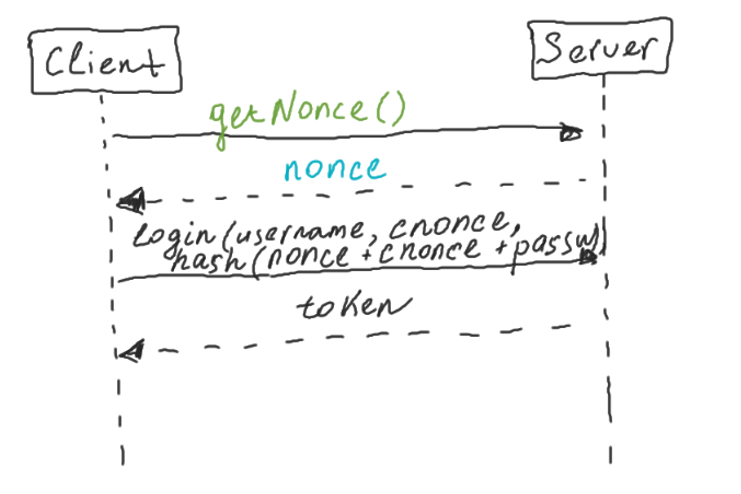 Client
Server
getNonce()
nonce
login(username, cnonce,
hash(nonce + cnonce + passw)
token